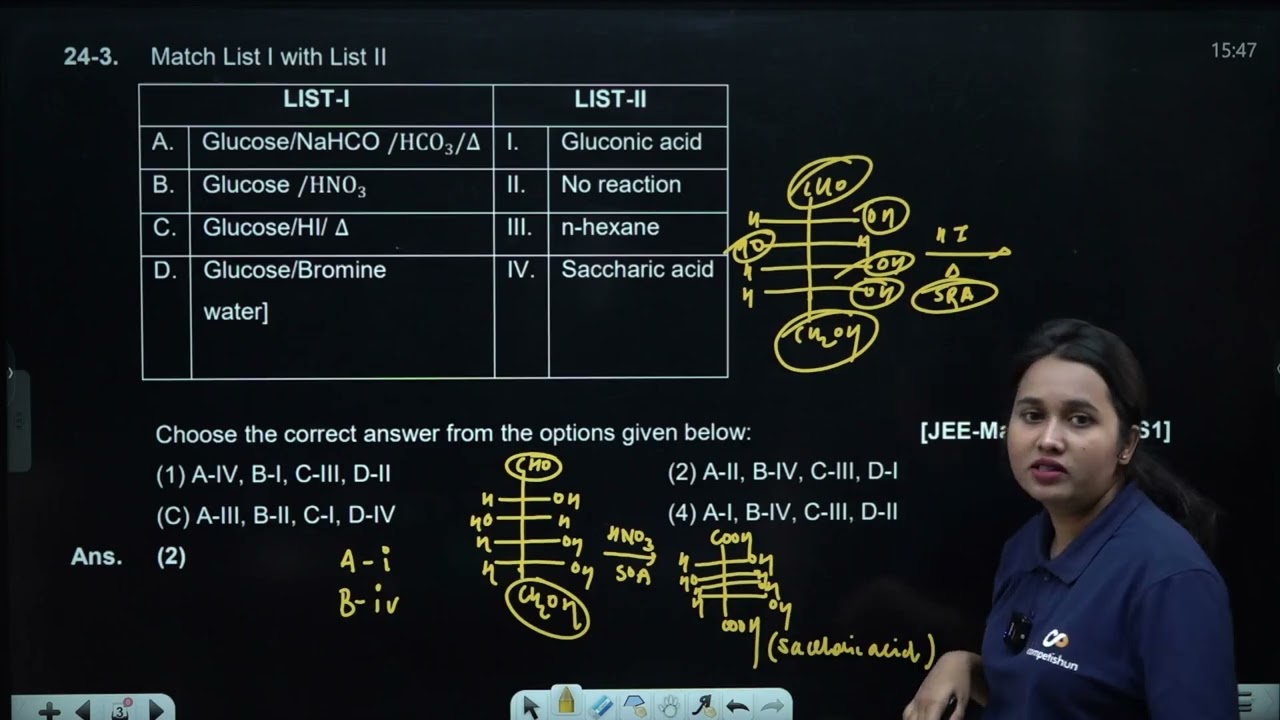 15:47
24-3. Match List I with List II
LIST-I LIST-II
A. Glucose/NaHCO /HCO₃/Δ I. Gluconic acid
B. Glucose /HNO₃ II. No reaction
C. Glucose/HI/ Δ III. n-hexane
D. Glucose/Bromine IV. Saccharic acid
water]
CHO
H OH
HO H
H OH
H OH
CH₂OH
HI
Δ
SRA
Choose the correct answer from the options given below: [JEE-Ma S1]
(1) A-IV, B-I, C-III, D-II (2) A-II, B-IV, C-III, D-I
(C) A-III, B-II, C-I, D-IV (4) A-I, B-IV, C-III, D-II
Ans. (2)
A - i
B - iv
CHO
H OH
HO H
H OH
H OH
CH₂OH
HNO₃
SOA
COOH
H OH
HO H
H OH
COOH
(Saccharic acid)
competishun
3